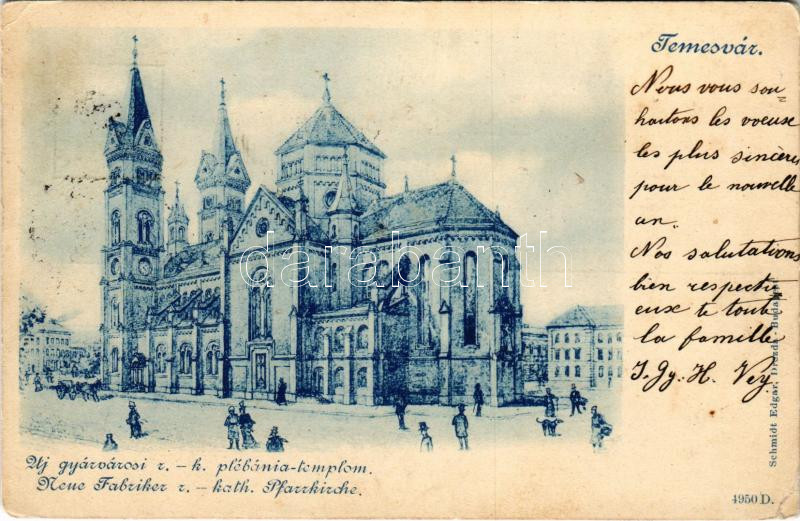 Temesvár.
Nous vous sou
haitons les voeuse
les plus sincères
pour le nouvelle
an.
Nos salutations
bien respectu
euse te toute
la famille
J. Gy. H. Vey
darabanth
Uj gyárvárosi r. - k. plébánia-templom.
Neue Fabriker r. - kath. Pfarrkirche.
Schmidt Edgar, Dresden-Budapest
4950 D.